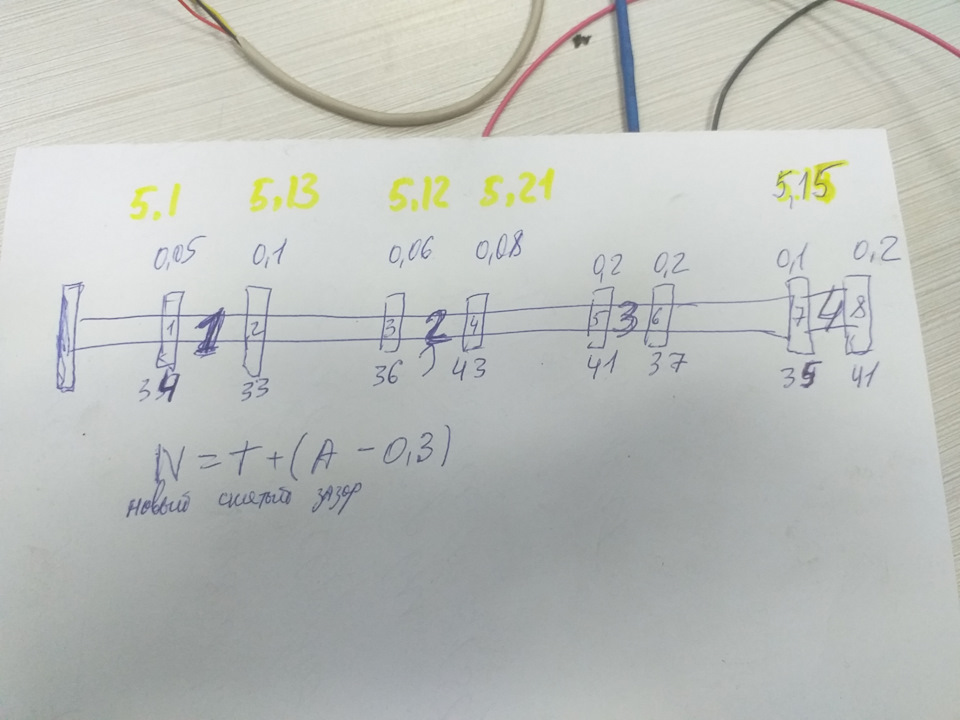 5,1 5,13 5,12 5,21 5,15
0,05 0,1 0,06 0,08 0,2 0,2 0,1 0,2
1 1 2 3 2 4 5 3 6 7 4 8
34 33 36 43 41 37 35 41
N = T + (A - 0,3)
новый снятый зазор